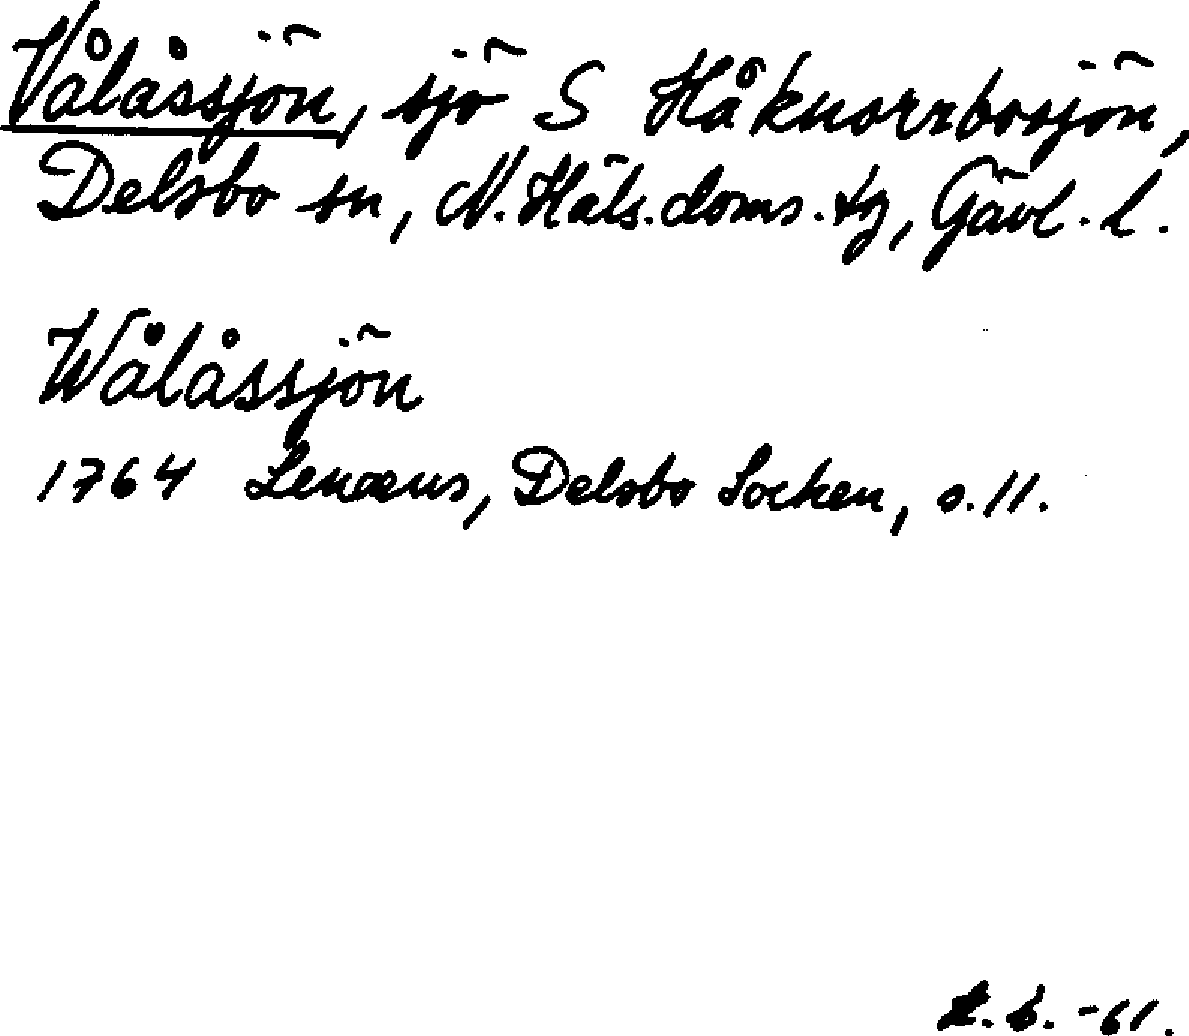 Vålåssjön, sjö S Håknorrbosjön,
Delsbo sn, N. Häls. doms. tg, Gävl. l.
Wålåssjön
1764 Lenæus, Delsbo Socken, s. 11.
-61.